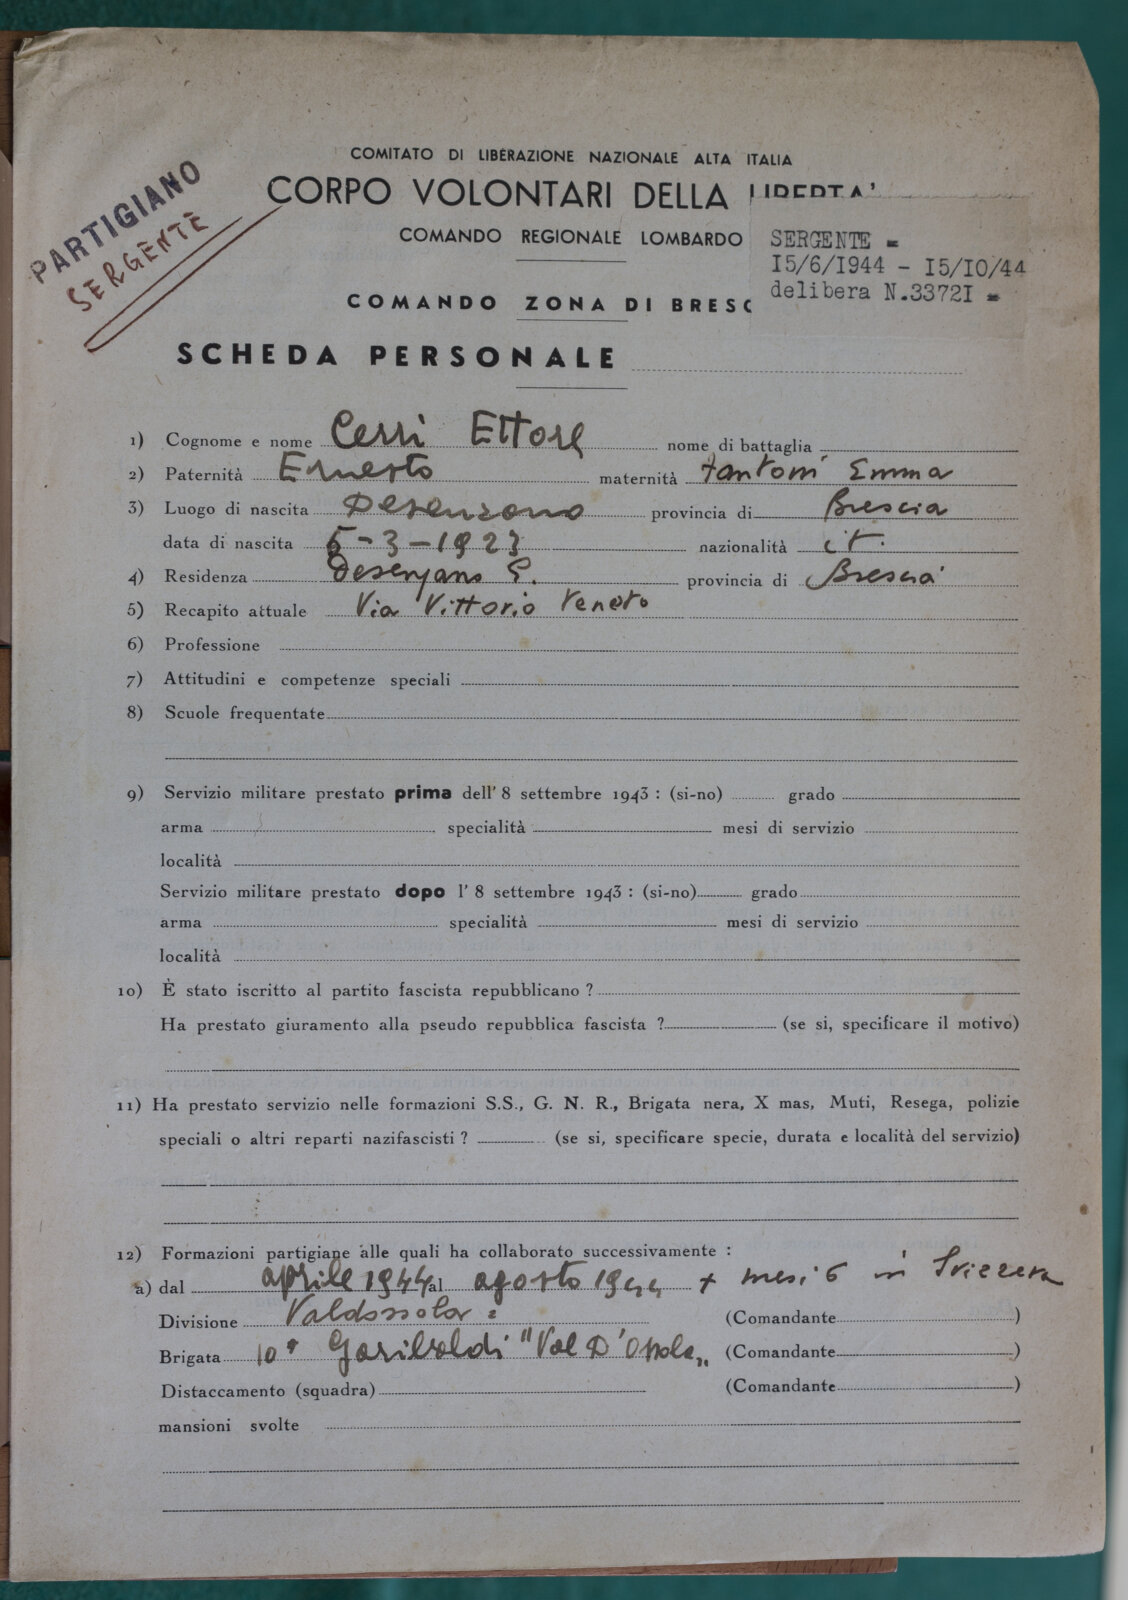 COMITATO DI LIBERAZIONE NAZIONALE ALTA ITALIA
CORPO VOLONTARI DELLA LIBERTA'
COMANDO REGIONALE LOMBARDO
PARTIGIANO
SERGENTE
SERGENTE =
I5/6/I944 - I5/IO/44
delibera N.3372I =
COMANDO ZONA DI BRESC
SCHEDA PERSONALE
1) Cognome e nome Cerri Ettore nome di battaglia
2) Paternità Ernesto maternità Fantoni Emma
3) Luogo di nascita Desenzano provincia di Brescia
data di nascita 5-3-1923 nazionalità it.
4) Residenza Desenzano G. provincia di Brescia
5) Recapito attuale Via Vittorio Veneto
6) Professione
7) Attitudini e competenze speciali
8) Scuole frequentate
9) Servizio militare prestato prima dell' 8 settembre 1943 : (si-no) grado
arma specialità mesi di servizio
località
Servizio militare prestato dopo l' 8 settembre 1943 : (si-no) grado
arma specialità mesi di servizio
località
10) È stato iscritto al partito fascista repubblicano ?
Ha prestato giuramento alla pseudo repubblica fascista ? (se si, specificare il motivo)
11) Ha prestato servizio nelle formazioni S.S., G. N. R., Brigata nera, X mas, Muti, Resega, polizie
speciali o altri reparti nazifascisti ? (se si, specificare specie, durata e località del servizio)
12) Formazioni partigiane alle quali ha collaborato successivamente :
a) dal aprile 1944 al agosto 1944 + mesi 6 in Svizzera
Divisione Valdossola = (Comandante )
Brigata 10ª Garibaldi "Val D'Ossola" (Comandante )
Distaccamento (squadra) (Comandante )
mansioni svolte